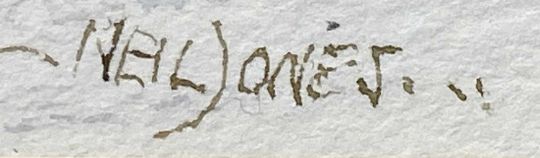 NEIL JONES...